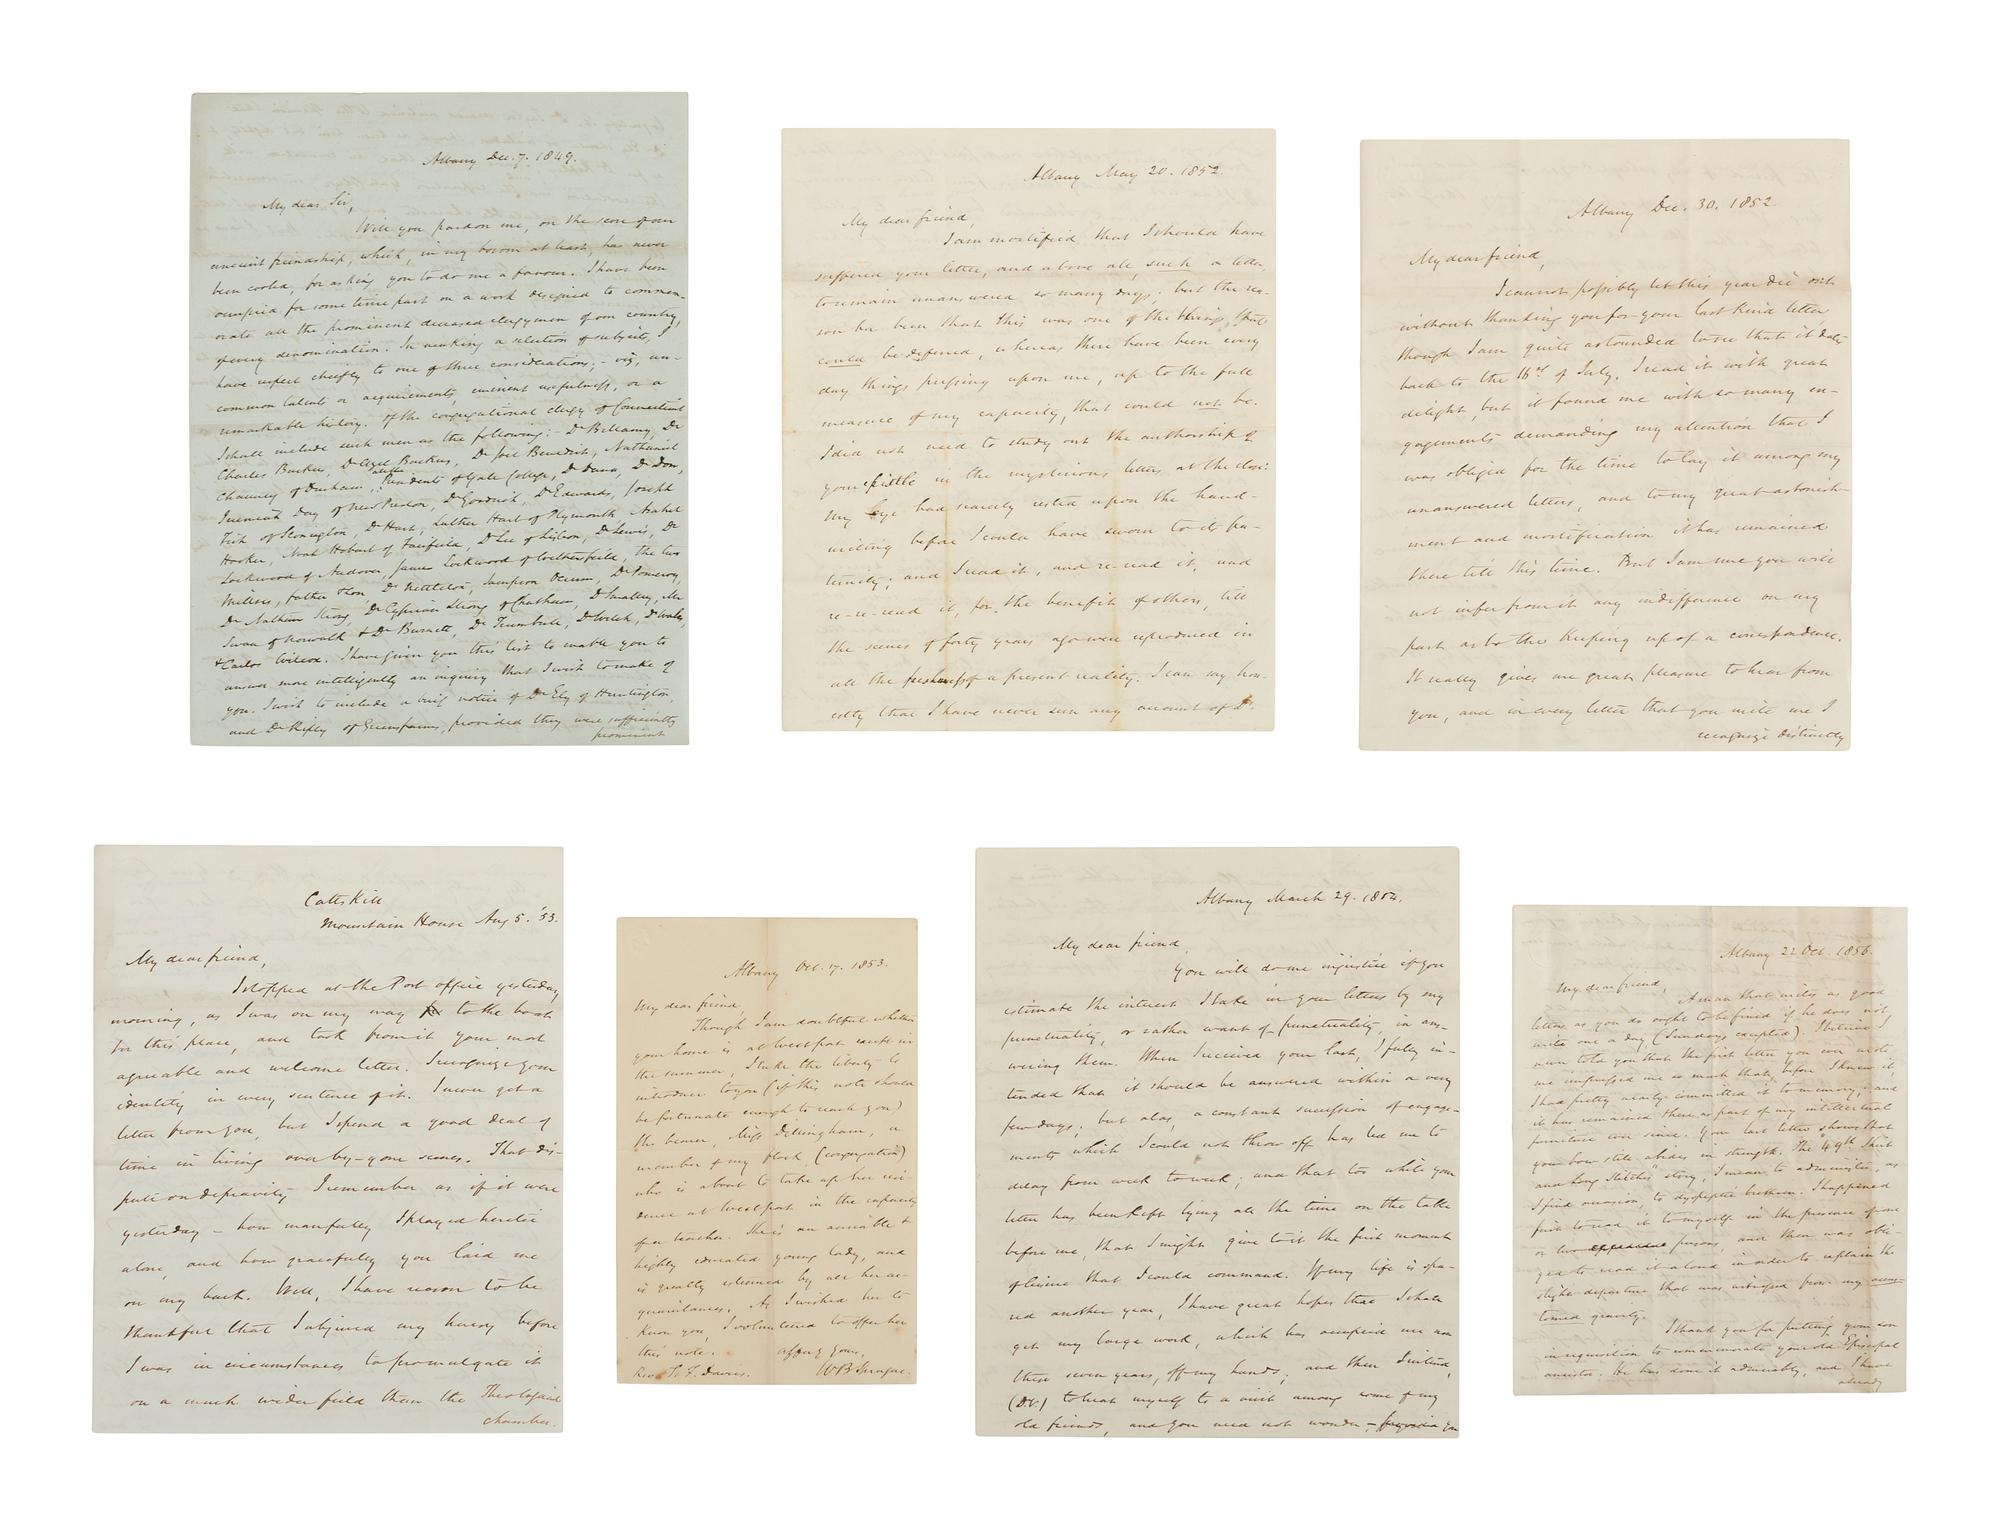 Albany Dec. 7. 1849.
My dear Sir,
Will you pardon me, on the score of our
ancient friendship, which, in my bosom at least, has never
been cooled, for asking you to do me a favour. I have been
occupied for some time past on a work designed to commem-
orate all the prominent deceased clergymen of our country,
of every denomination. In making a selection of subjects, I
have respect chiefly to one of three considerations; – viz, un-
common talents or acquirements, eminent usefulness, or a
remarkable history. Of the congregational clergy of Connecticut
I shall include such men as the following: – Dr Bellamy, Dr
Charles Backus, Dr Azel Backus, Dr Joel Benedict, Nathaniel
Chauncey of Durham, all the Presidents of Yale College, Dr Dana, Dr Dow,
Jeremiah Day of New Preston, Dr Goodrich, Dr Edwards, Joseph
Fish of Stonington, Dr Hart, Luther Hart of Plymouth, Asahel
Hooker, Noah Hobart of Fairfield, Dr Lee of Lisbon, Dr Lewis, Dr
Lockwood of Andover, James Lockwood of Wethersfield, the two
Millses, father Dr Nettleton, Sampson Occum, Dr Pomeroy,
Dr Nathan Strong, Dr Cyprian Strong of Chatham, Dr Smalley, Mr
Swan of Norwalk & Dr Burnett, Dr Trumbull, Dr Welch, Dr Wales,
& Carlos Wilcox. I have given you this list to enable you to
answer more intelligently an inquiry that I wish to make of
you. I wish to include a brief notice of Dr Ely of Huntington,
and Dr Ripley of Greensfarms, provided they were sufficiently
prominent
Albany May 20. 1852.
My dear friend,
I am mortified that I should have
suffered your letter, and above all, such a letter,
to remain unanswered so many days; but the rea-
son has been that this was one of the things that
could be deferred, whereas there have been every
day things pressing upon me, up to the full
measure of my capacity, that could not be.
I did not need to study out the authorship of
your epistle in the mysterious letters at the close:
My eye had scarcely rested upon the hand-
writing before I could have sworn to its pa-
ternity; and I read it, and re-read it, and
re-re-read it, for the benefit of others, till
the scenes of forty years ago were reproduced in
all the freshness of a present reality. I can say hon-
estly that I have never seen any account of Dr.
Albany Dec. 30. 1852.
My dear friend,
I cannot possibly let this year die out
without thanking you for your last kind letter
though I am quite astounded to see that it dates
back to the 16th of July. I read it with great
delight, but it found me with so many en-
gagements demanding my attention that I
was obliged for the time to lay it among my
unanswered letters, and to my great astonish-
ment and mortification it has remained
there till this time. But I am sure you will
not infer from it any indifference on my
part as to the keeping up of a correspondence.
It really gives me great pleasure to hear from
you, and in every letter that you write me I
recognize distinctly
Catts Kill
Mountain House Aug 5. '53.
My dear friend,
I stopped at the Post office yesterday
morning, as I was on my way to the boat
for this place, and took from it your most
agreeable and welcome letter. I recognize your
identity in every sentence of it. I never get a
letter from you, but I spend a good deal of
time in living over by-gone scenes. That dis-
pute on depravity I remember as if it were
yesterday – how manfully I played heretic
alone, and how gracefully you laid me
on my back. Well, I have reason to be
thankful that I abjured my heresy before
I was in circumstances to promulgate it
on a much wider field than the Theological
chamber.
Albany Oct. 17. 1853.
My dear friend,
Though I am doubtful whether
your home is at Westport except in
the summer, I take the liberty to
introduce to you (if this note should
be fortunate enough to reach you)
the bearer, Miss Dillingham, a
member of my flock (congregation)
who is about to take up her resi-
dence at Westport in the capacity
of a teacher. She is an amiable &
highly educated young lady, and
is greatly esteemed by all her ac-
quaintances. As I wished her to
know you, I volunteered to offer her
this note. affecy yours,
Rev. T. F. Davies. W B Sprague.
Albany March 29. 1854.
My dear friend,
You will do me injustice if you
estimate the interest I take in your letters by my
punctuality, or rather want of punctuality, in ans-
wering them. When I received your last, I fully in-
tended that it should be answered within a very
few days; but alas, a constant succession of engage-
ments which I could not throw off has led me to
delay from week to week; and that too while your
letter has been kept lying all the time on the table
before me, that I might give to it the first moment
of leisure that I could command. If my life is spa-
red another year, I have great hopes that I shall
get my large work, which has occupied me now
these seven years, off my hands; and then I intend,
(D.V.) to treat myself to a visit among some of my
old friends, and you need not wonder –
Albany 22 Oct. 1856.
My dear friend,
A man that writes as good
letters as you do ought to be fined if he does not
write one a day, (Sundays excepted). I believe
I have told you that the first letter you ever wrote
me impressed me so much that, before I knew it,
I had pretty nearly committed it to memory, and
it has remained there as part of my intellectual
furniture ever since. Your last letter shows that
your bow still abides in strength. The "49th Shirt
and Long Stitches" story, I mean to administer, as
I find occasion, to dyspeptic brethren. I happened
first to read it to myself in the presence of one
or two persons and then was obli-
ged to read it aloud in order to explain the
slight departure that was witnessed from my accus-
tomed gravity.
I thank you for putting your son
in requisition to commemorate your old Episcopal
ancestor. He has done it admirably, and I have
already